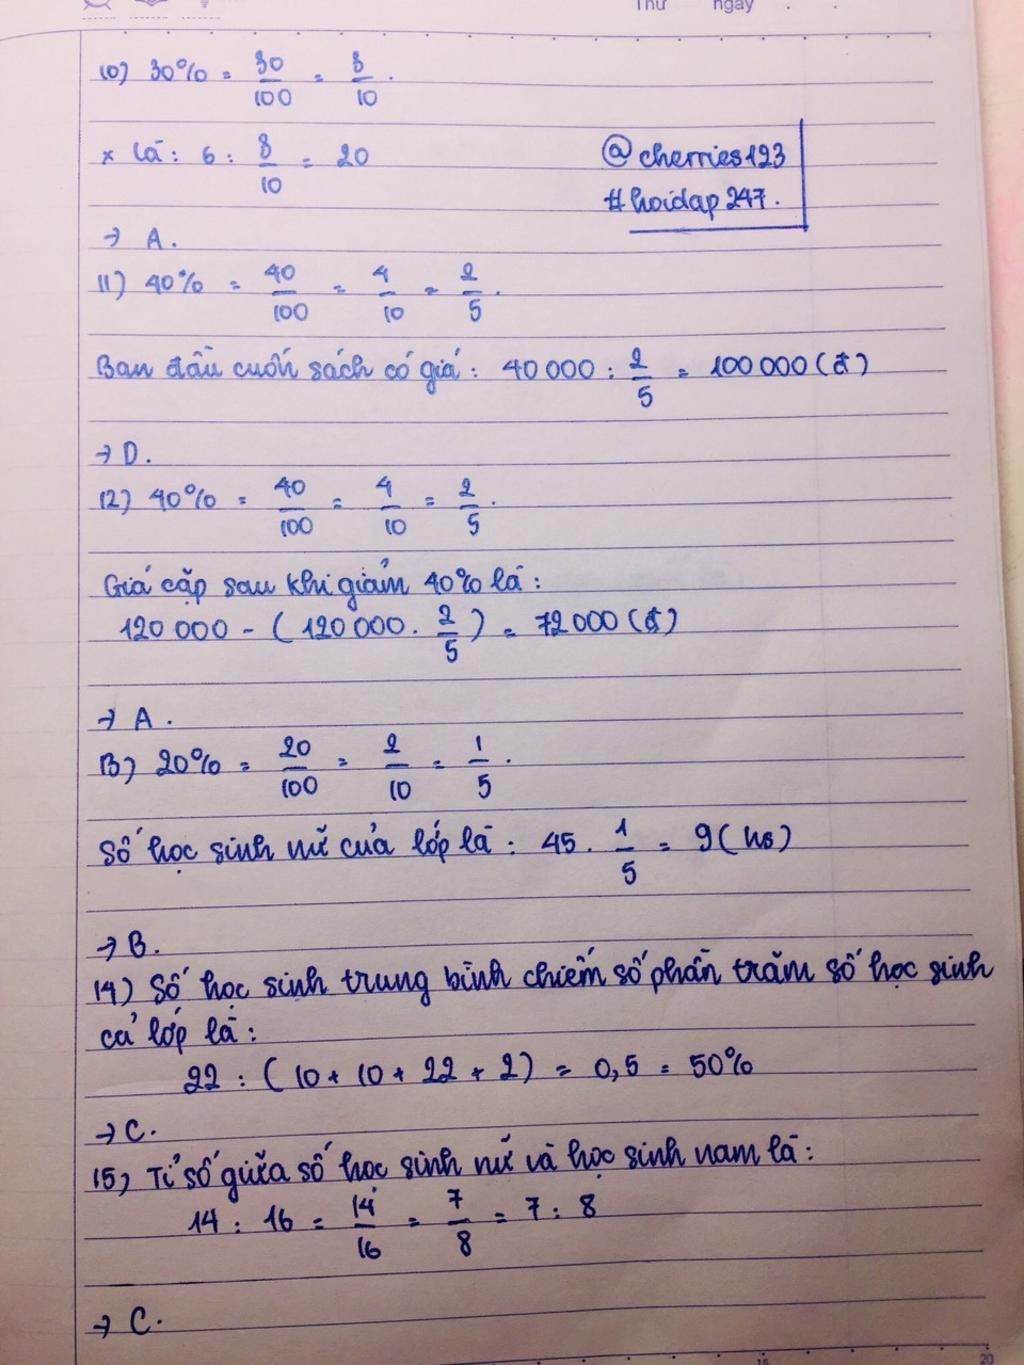 Thứ ngày
10) 30% = 30/100 = 3/10.
x là: 6 : 3/10 = 20
@cherries123
#hoidap247.
→ A.
11) 40% = 40/100 = 4/10 = 2/5.
Ban đầu cuốn sách có giá: 40 000 : 2/5 = 100 000 (đ)
→ D.
12) 40% = 40/100 = 4/10 = 2/5.
Giá cặp sau khi giảm 40% là:
120 000 - (120 000. 2/5) = 72 000 (đ)
→ A.
13) 20% = 20/100 = 2/10 = 1/5.
Số học sinh nữ của lớp là: 45. 1/5 = 9 (hs)
→ B.
14) Số học sinh trung bình chiếm số phần trăm số học sinh
cả lớp là:
22 : (10 + 10 + 22 + 2) = 0,5 = 50%
→ C.
15) Tỉ số giữa số học sinh nữ và học sinh nam là:
14 : 16 = 14/16 = 7/8 = 7 : 8
→ C.
15 20